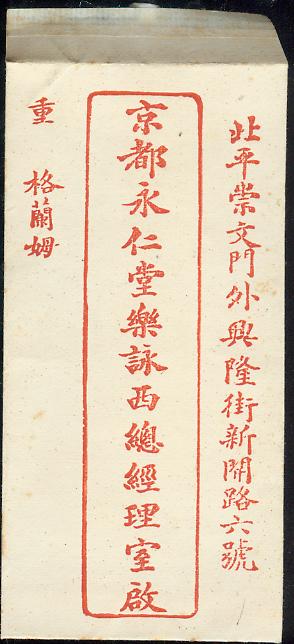 北平崇文門外興隆街新開路六號
京都永仁堂樂詠西總經理室啟
重 格蘭姆